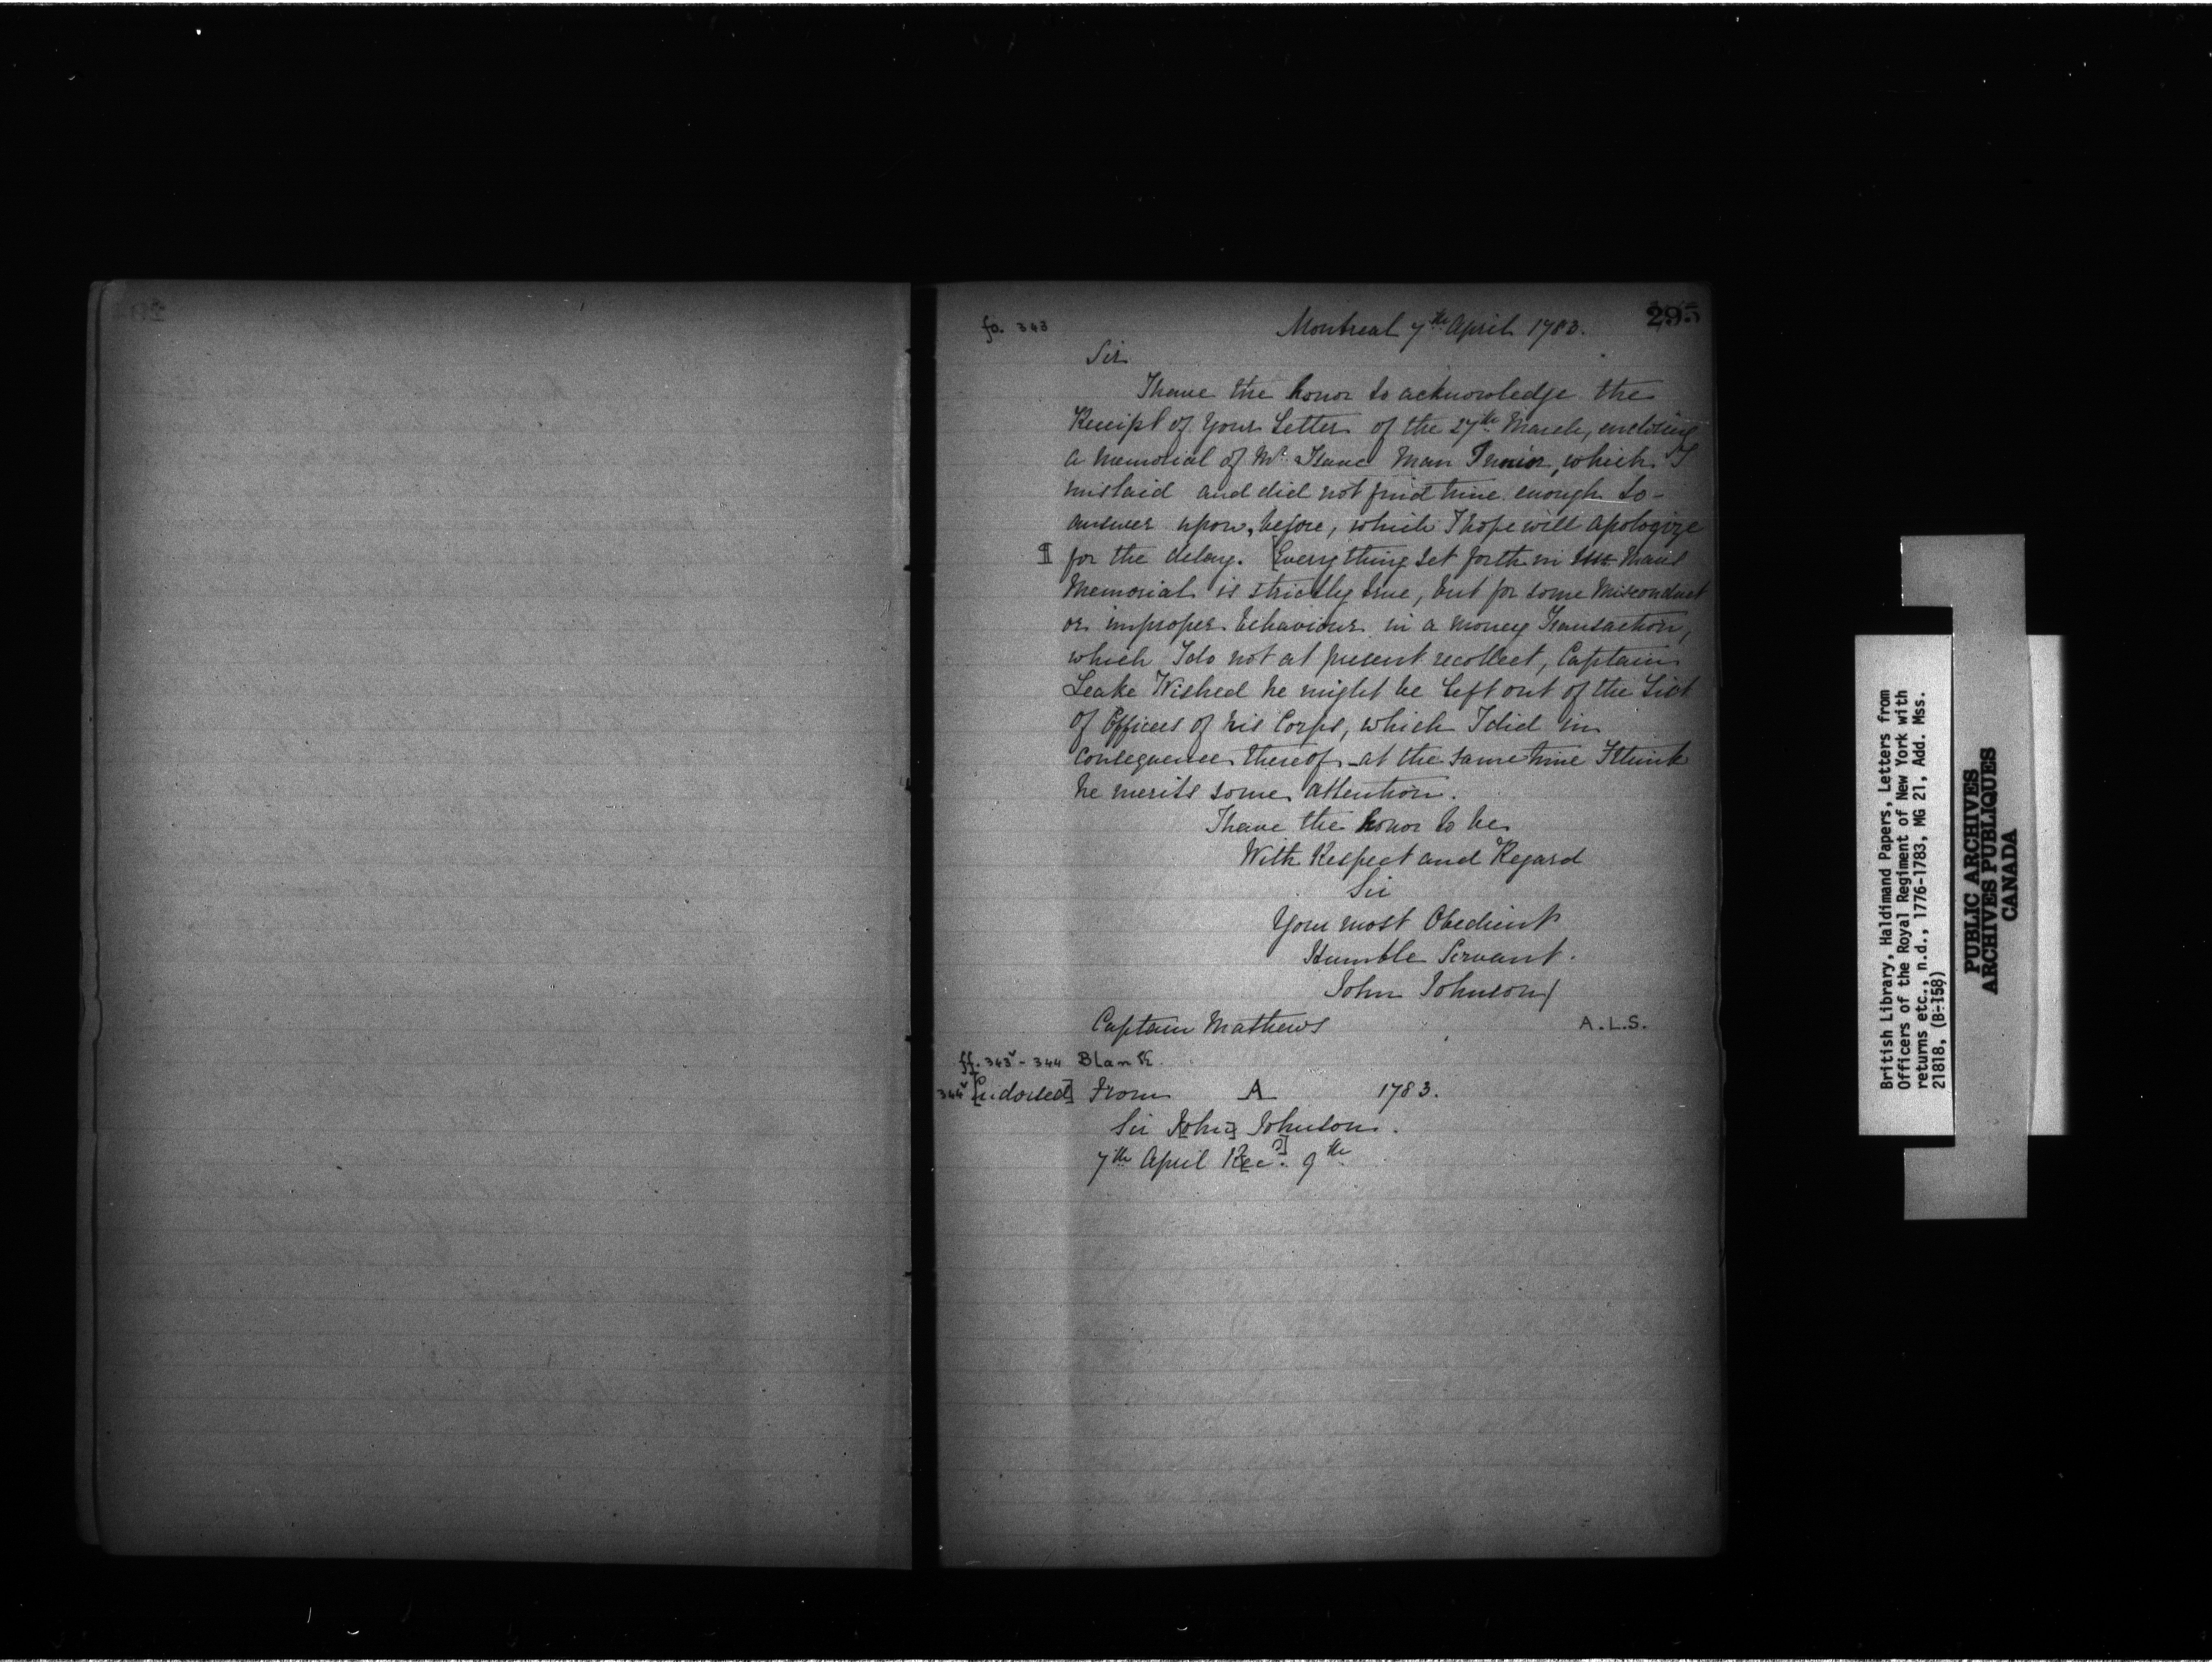 fo. 343
Montreal 7th April 1783.
295
Sir
I have the honor to acknowledge the
Receipt of Your Letter of the 27th March, enclosing
a Memorial of Mr Isaac Man Junior, which I
mislaid and did not find time enough to
answer upon, before, which I hope will apologize
¶ for the delay. [Everything set forth in Mans
Memorial is strictly true, but for some Misconduct
or improper behaviour in a money Transaction,
which I do not at present recollect, Captain
Leake Wished he might be left out of the List
of Officers of his Corps, which I did in
consequence thereof - at the same time I think
he merits some attention.
I have the honor to be
With Respect and Regard
Sir
Your most Obedient
Humble Servant.
John Johnson/
Captain Mathews
A.L.S.
ff. 343v - 344 Blank.
344v [Endorsed] From A 1783.
Sir John Johnson.
7th April Rec'd 9th
British Library, Haldimand Papers, Letters from
Officers of the Royal Regiment of New York with
returns etc., n.d., 1776-1783, MG 21, Add. Mss.
21818, (B-158)
PUBLIC ARCHIVES
ARCHIVES PUBLIQUES
CANADA